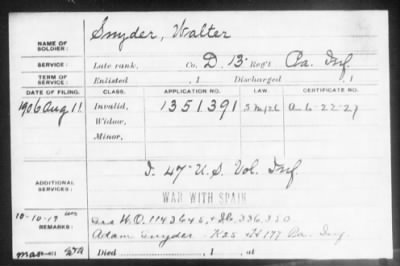 NAME OF SOLDIER: Snyder, Walter
SERVICE: Late rank, Co. D. 13 Reg't Pa. Inf.
TERM OF SERVICE: Enlisted , 1 Discharged , 1
DATE OF FILING. CLASS. APPLICATION NO. LAW. CERTIFICATE NO.
1906 Aug 11 Invalid, 1351391
Widow,
Minor,
ADDITIONAL SERVICES: I. 47 U.S. Vol. Inf.
WAR WITH SPAIN
10-10-19
REMARKS: W.O. 1143645,
Adam Snyder - K25 + H 177 Pa. Inf.
Died , 1 , at